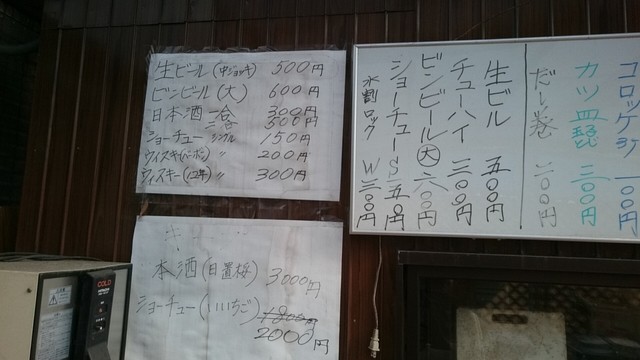 生ビール(中ジョッキ) 500円
ビンビール(大) 600円
日本酒 一合 300円
二合 500円
ショーチュー シングル 150円
ウイスキー(バーボン) 〃 200円
ウィスキー(12年) 〃 300円
本酒(日置桜) 3000円
ショーチュー(いいちこ)
2000円
コロッケ3ケ 一〇〇円
カツ皿 二〇〇円
だし巻 二〇〇円
生ビル 五〇〇円
チューハイ 二〇〇円
ビンビール(大) 六〇〇円
ショーチュー S 一五〇円
水割ロック W 三〇〇円
COLD